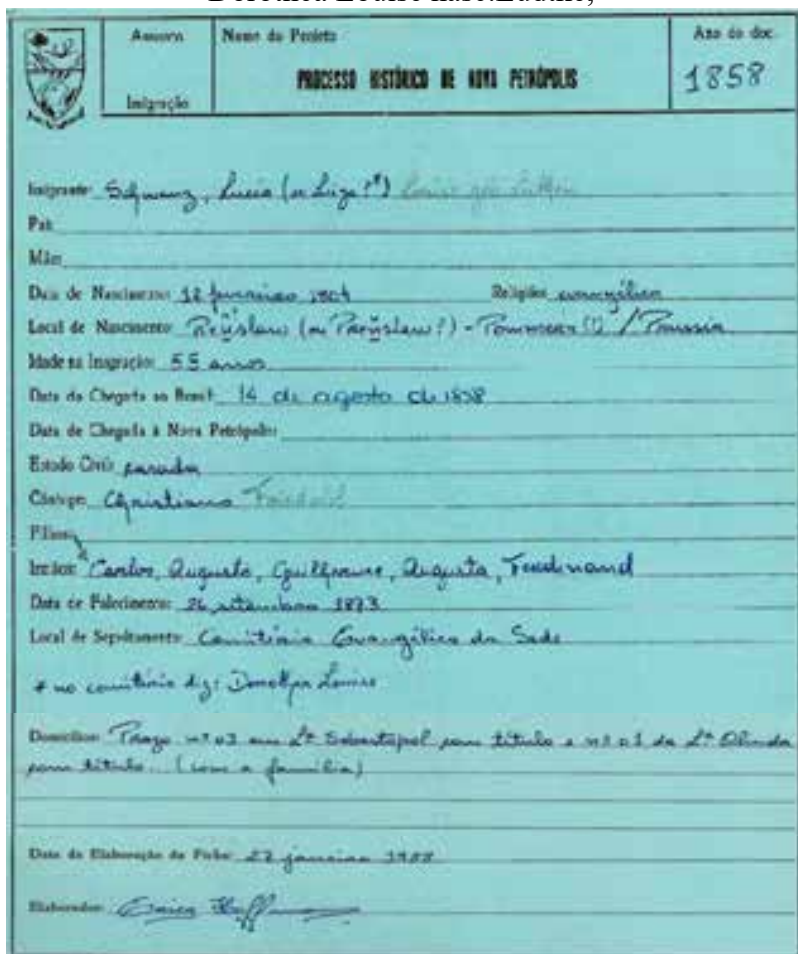 Dorothea Louise nasc.Lüdtke,
Assunto
Nome do Projeto
Ano do doc.
PROCESSO HISTÓRICO DE NOVA PETRÓPOLIS
1858
Imigração
Imigrante: Schwanz, Lucia (ou Luiza?*) Louise
Pai:
Mãe:
Data de Nascimento: 12 fevereiro 1804 Religião: evangélica
Local de Nascimento: (ou ?) - / Prussia
Idade na Imigração: 55 anos
Data da Chegada ao Brasil: 14 de agosto de 1858
Data de Chegada à Nova Petrópolis:
Estado Civil: casada
Cônjuge: Christiano Friedrich
Filhos:
Irmãos: Carlos, Augusto, Guilherme, Augusta, Ferdinand
Data de Falecimento: 26 setembro 1873
Local de Sepultamento: Cemitério Evangélico da Sede
* no cemitério diz: Dorothea Louise
Domicílio: Prazo nº 03 em Lª Sebastopol sem título e nº 01 da Lª Olinda
sem título. (com a família)
Data da Elaboração da Ficha: 27 janeiro 1988
Elaborador: